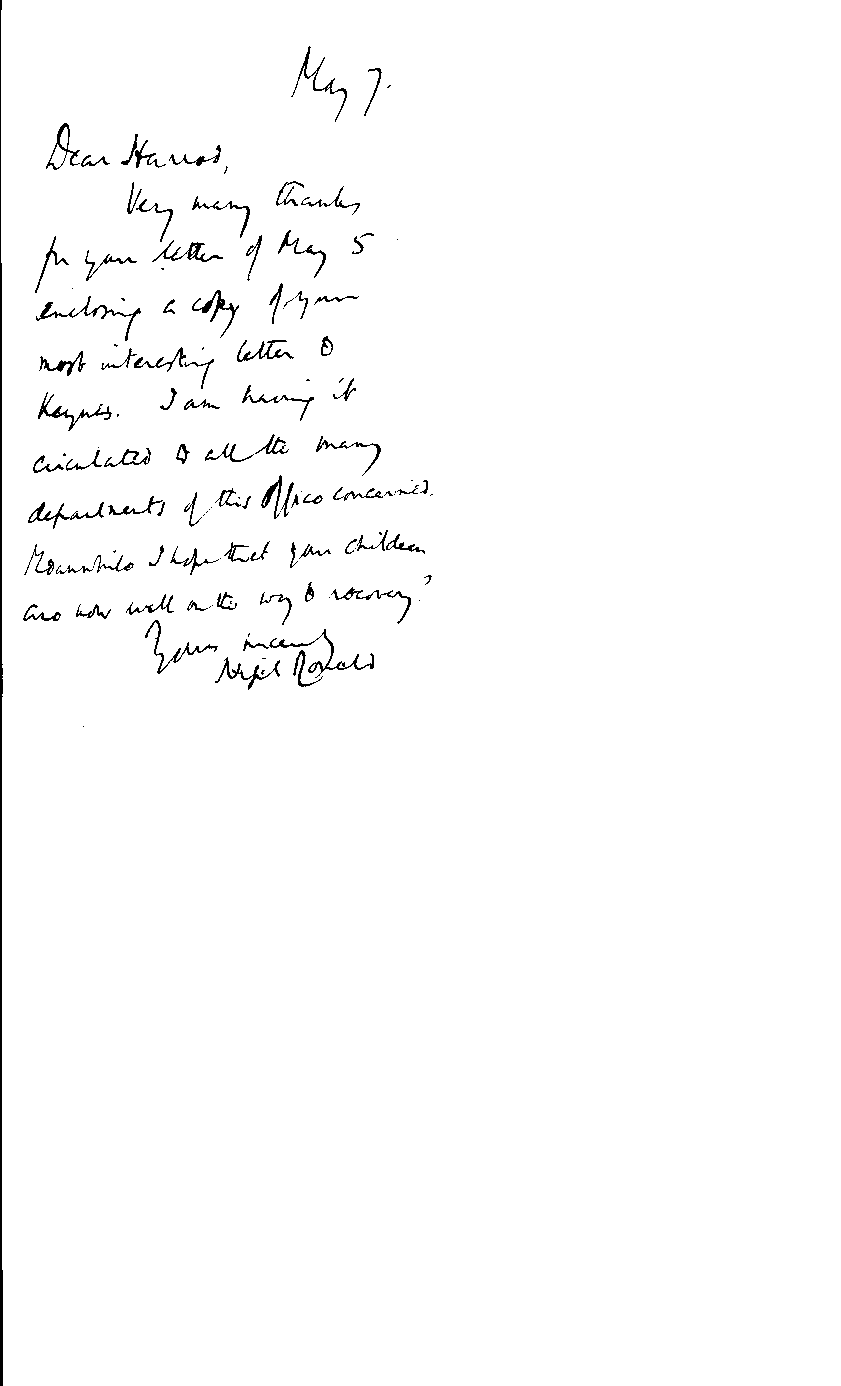 May 7.
Dear Harrod,
Very many thanks
for your letter of May 5
enclosing a copy of your
most interesting letter to
Keynes. I am having it
circulated to all the many
departments of this Office concerned.
Meanwhile I hope that your children
are now well on the way to recovery?
Yours sincerely
Nigel Ronald